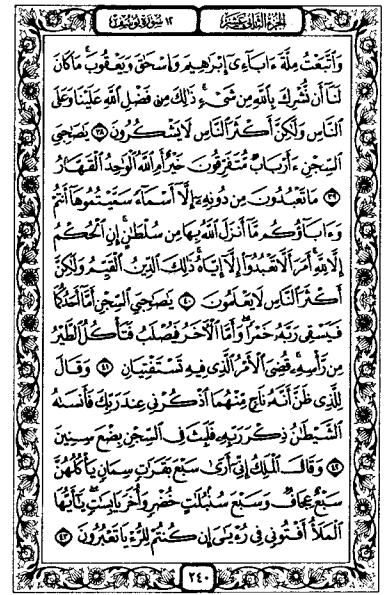 الجزء الثاني عشر ١٢ سورة يوسف
وَٱتَّبَعۡتُ مِلَّةَ ءَابَآءِيٓ إِبۡرَٰهِيمَ وَإِسۡحَٰقَ وَيَعۡقُوبَۚ مَا كَانَ
لَنَآ أَن نُّشۡرِكَ بِٱللَّهِ مِن شَيۡءٖۚ ذَٰلِكَ مِن فَضۡلِ ٱللَّهِ عَلَيۡنَا وَعَلَى
ٱلنَّاسِ وَلَٰكِنَّ أَكۡثَرَ ٱلنَّاسِ لَا يَشۡكُرُونَ ٣٨ يَٰصَٰحِبَيِ
ٱلسِّجۡنِ ءَأَرۡبَابٞ مُّتَفَرِّقُونَ خَيۡرٌ أَمِ ٱللَّهُ ٱلۡوَٰحِدُ ٱلۡقَهَّارُ
٣٩ مَا تَعۡبُدُونَ مِن دُونِهِۦٓ إِلَّآ أَسۡمَآءٗ سَمَّيۡتُمُوهَآ أَنتُمۡ
وَءَابَآؤُكُم مَّآ أَنزَلَ ٱللَّهُ بِهَا مِن سُلۡطَٰنٍۚ إِنِ ٱلۡحُكۡمُ
إِلَّا لِلَّهِ أَمَرَ أَلَّا تَعۡبُدُوٓاْ إِلَّآ إِيَّاهُۚ ذَٰلِكَ ٱلدِّينُ ٱلۡقَيِّمُ وَلَٰكِنَّ
أَكۡثَرَ ٱلنَّاسِ لَا يَعۡلَمُونَ ٤٠ يَٰصَٰحِبَيِ ٱلسِّجۡنِ أَمَّآ أَحَدُكُمَا
فَيَسۡقِي رَبَّهُۥ خَمۡرٗاۖ وَأَمَّا ٱلۡأٓخَرُ فَيُصۡلَبُ فَتَأۡكُلُ ٱلطَّيۡرُ
مِن رَّأۡسِهِۦۚ قُضِيَ ٱلۡأَمۡرُ ٱلَّذِي فِيهِ تَسۡتَفۡتِيَانِ ٤١ وَقَالَ
لِلَّذِي ظَنَّ أَنَّهُۥ نَاجٖ مِّنۡهُمَا ٱذۡكُرۡنِي عِندَ رَبِّكَ فَأَنسَىٰهُ
ٱلشَّيۡطَٰنُ ذِكۡرَ رَبِّهِۦ فَلَبِثَ فِي ٱلسِّجۡنِ بِضۡعَ سِنِينَ
٤٢ وَقَالَ ٱلۡمَلِكُ إِنِّيٓ أَرَىٰ سَبۡعَ بَقَرَٰتٖ سِمَانٖ يَأۡكُلُهُنَّ
سَبۡعٌ عِجَافٞ وَسَبۡعَ سُنۢبُلَٰتٍ خُضۡرٖ وَأُخَرَ يَابِسَٰتٖۖ يَٰٓأَيُّهَا
ٱلۡمَلَأُ أَفۡتُونِي فِي رُءۡيَٰيَ إِن كُنتُمۡ لِلرُّءۡيَا تَعۡبُرُونَ ٤٣
٢٤٠